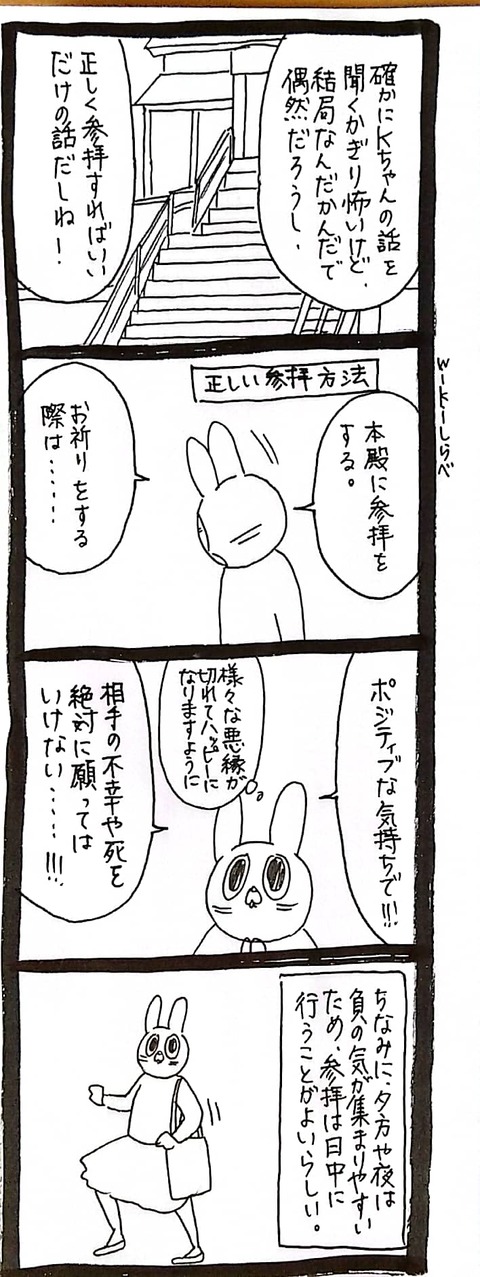 確かにKちゃんの話を
聞くかぎり怖いけど、
結局なんだかんだで
偶然だろうし、
正しく参拝すればいい
だけの話だしね！
正しい参拝方法
wikiしらべ
本殿に参拝を
する。
お祈りをする
際は……
ポジティブな気持ちで!!!
様々な悪縁が
切れてハッピーに
なりますように
相手の不幸や死を
絶対に願っては
いけない……!!!
ちなみに、夕方や夜は
負の気が集まりやすい
ため、参拝は日中に
行うことがよいらしい。